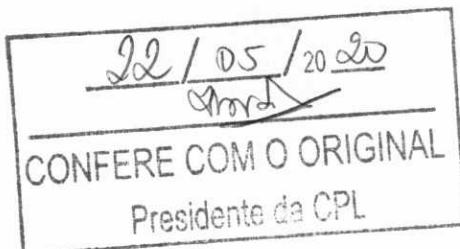 22 / 05 / 20 20
CONFERE COM O ORIGINAL
Presidente da CPL